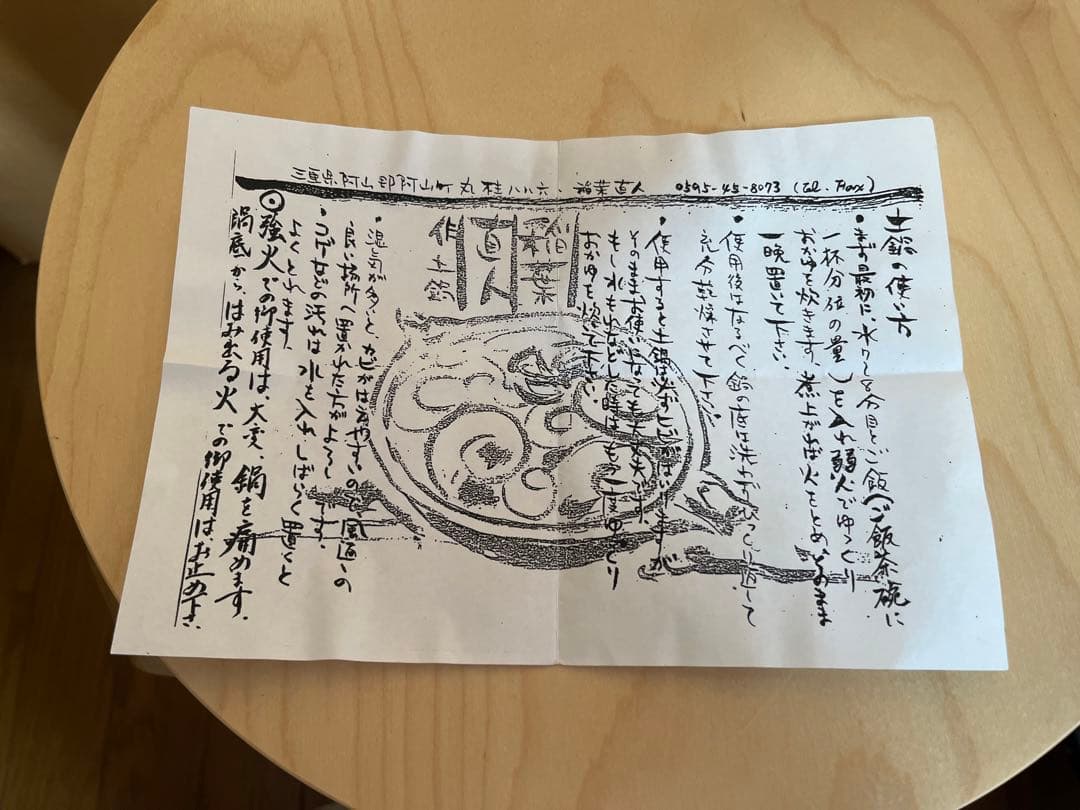 三重県阿山郡阿山町丸柱八八六、稲葉直人 0595-45-8073 (Tel. Fax)
土鍋の使い方
・まず最初に、水7~8分目とご飯(ご飯茶碗に
一杯分位の量)を入れ弱火でゆっくり
おかゆを炊きます。煮上がれば火をとめ、そのまま
一晩置いて下さい。
・使用後はなるべく鍋の底は洗わずひっくり返して
充分乾燥させて下さい。
・使用すると土鍋は必ずヒビがはいりますが
そのままお使いになっても大丈夫です。
もし水もれなどした時は、もう一度ゆっくり
おかゆを炊いて下さい。
稲葉
直人
作土鍋
・湿気が多いとカビがはえやすいので風通しの
良い場所へ置かれた方がよろしいです。
・コゲなどの汚れは水を入れしばらく置くと
よくとれます。
⦿強火での御使用は、大変、鍋を痛めます。
鍋底から、はみ出る火での御使用は、お止め下さい